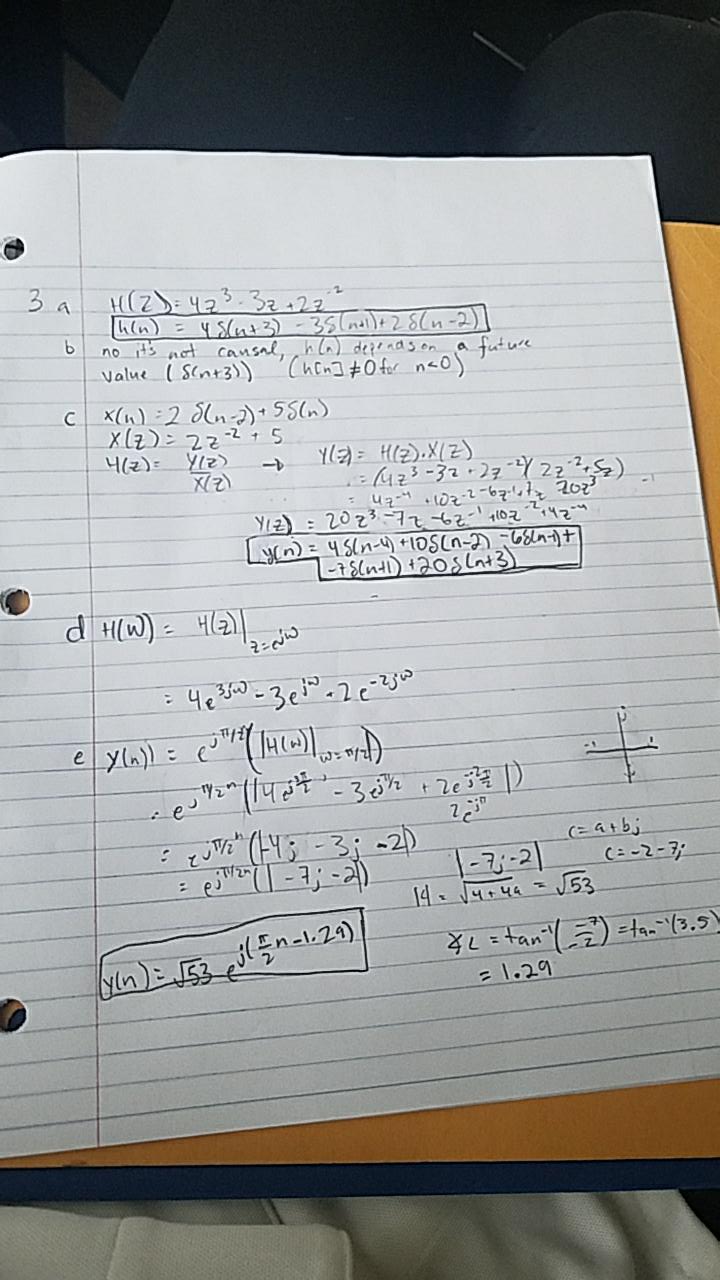 3 a H(z) = 4z³ - 3z + 2z⁻²
h(n) = 4δ(n+3) - 3δ(n+1) + 2δ(n-2)
b no it's not causal, h(n) depends on a future
value (δ(n+3)) (h[n] ≠ 0 for n<0)
c x(n) = 2 δ(n-2) + 5δ(n)
X(z) = 2z⁻² + 5
H(z) = Y(z)/X(z) → Y(z) = H(z).X(z)
= (4z³ - 3z + 2z⁻²)(2z⁻² + 5z)
= 4z⁻⁴ + 10z⁻² - 6z⁻¹ 20z³
Y(z) = 20z³ - 7z - 6z⁻¹ + 10z⁻² + 4z⁻⁴
y(n) = 4δ(n-4) + 10δ(n-2) - 6δ(n-1) +
-7δ(n+1) + 20δ(n+3)
d H(W) = H(z)|z=e^jω
= 4e^3jω - 3e^jω + 2e^-2jω
e y(n) = e^jπ/2 (|H(ω)|ω=π/2|)
= e^jπ/2n (|4e^j3π/2 - 3e^jπ/2 + 2e^-j2π/2|)
2e^-jπ
= e^jπ/2n (|-4j - 3j - 2|)
c = a + bj
= e^jπ/2n (|-7j - 2|)
|-7j - 2|
c = -2 - 7j
|c| = √4+49 = √53
y(n) = √53 e^j(π/2 n - 1.29)
∡c = tan⁻¹(-7/-2) = tan⁻¹(3.5)
= 1.29